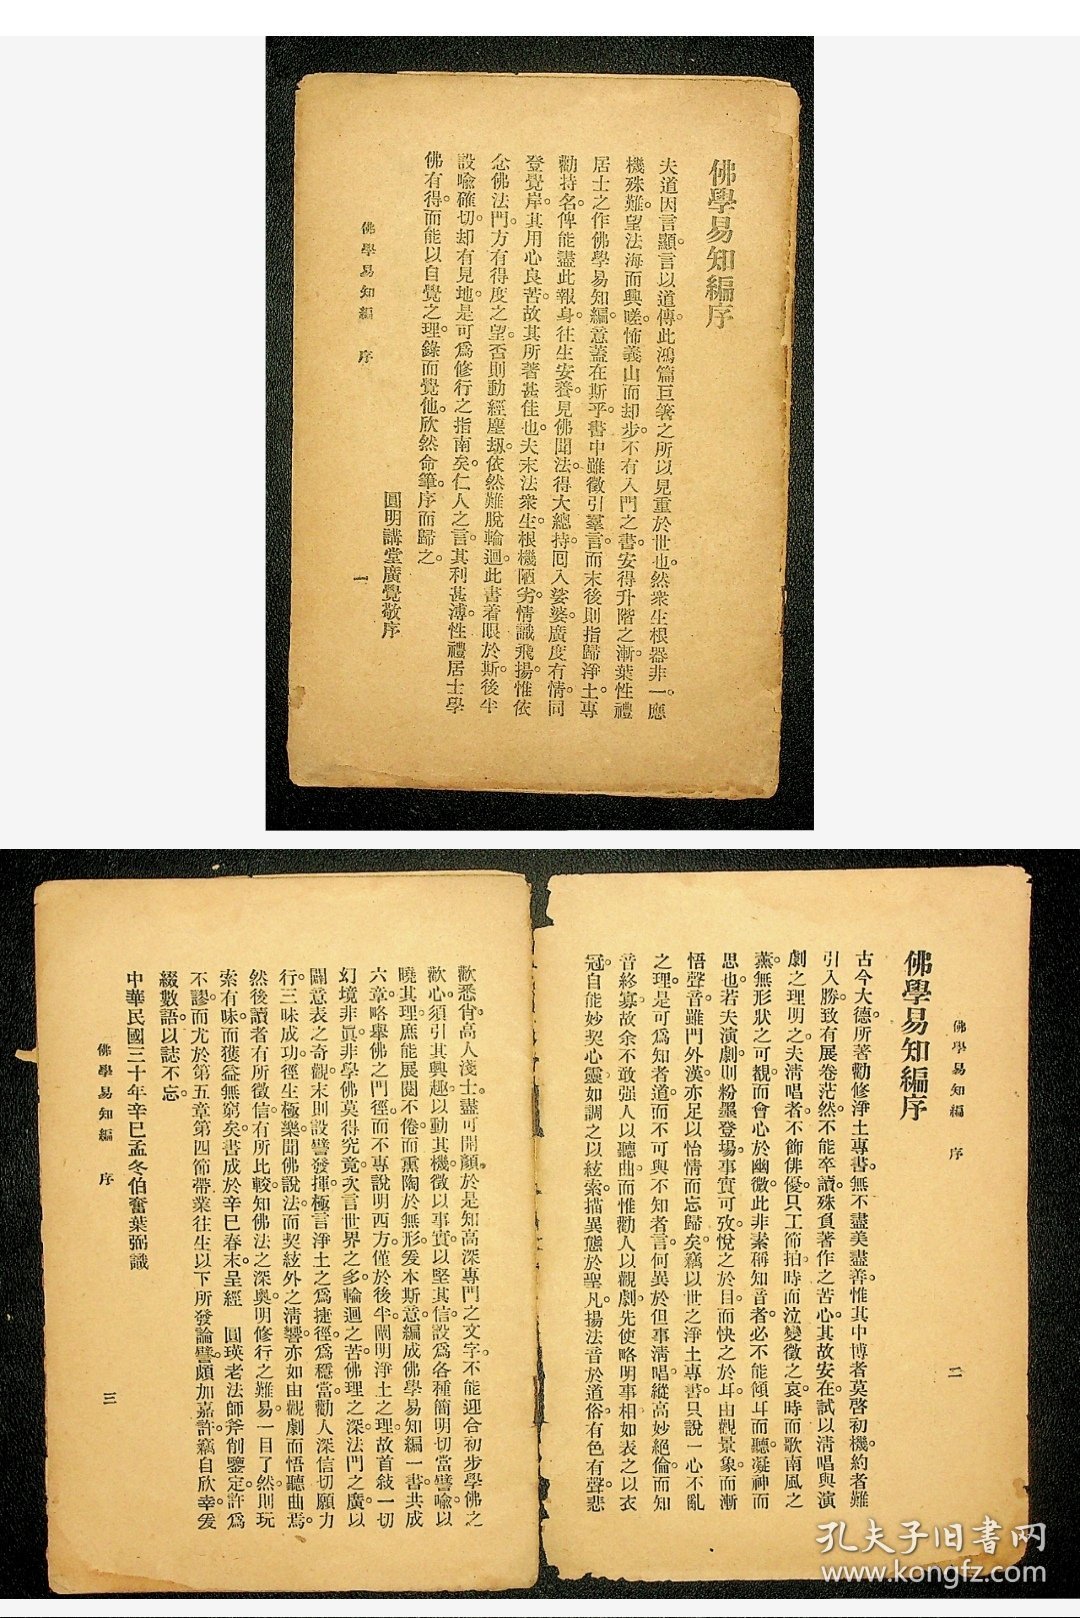 佛學易知編序
夫道因言顯。言以道傳。此鴻篇巨箸之所以見重於世也。然衆生根器非一。應
機殊難。望法海而興嗟。怖義山而却步。不有入門之書。安得升階之漸。葉性禮
居士之作佛學易知編。意蓋在斯乎。書中雖徵引羣言。而末後則指歸淨土。專
勸持名。俾能盡此報身。往生安養。見佛聞法。得大總持。回入娑婆。廣度有情。同
登覺岸。其用心良苦。故其所著甚佳也。夫末法衆生。根機陋劣。情識飛揚。惟依
念佛法門。方有得度之望。否則動經塵刼。依然難脫輪迴。此書着眼於斯。後半
設喻確切。却有見地。是可爲修行之指南矣。仁人之言。其利甚溥。性禮居士學
佛有得。而能以自覺之理。錄而覺他。欣然命筆。序而歸之。
圓明講堂廣覺敬序
佛學易知編　序
一
佛學易知編　序
二
佛學易知編序
古今大德所著勸修淨土專書。無不盡美盡善。惟其中博者莫啓初機。約者難
引入勝。致有展卷茫然。不能卒讀。殊負著作之苦心。其故安在。試以清唱與演
劇之理明之。夫清唱者。不飾俳優。只工節拍。時而泣變徵之哀。時而歌南風之
薰。無形狀之可覩。而會心於幽微。此非素稱知音者。必不能傾耳而聽。凝神而
思也。若夫演劇。則粉墨登場。事實可攷。悅之於目。而快之於耳。由觀景象而漸
悟聲音。雖門外漢。亦足以怡情而忘歸矣。竊以世之淨土專書。只說一心不亂
之理。是可爲知者道。而不可與不知者言。何異於但事清唱。縱高妙絕倫。而知
音終寡。故余不敢强人以聽曲。而惟勸人以觀劇。先使略明事相。如表之以衣
冠。自能妙契心靈。如調之以絃索。描異態於聖凡。揚法音於道俗。有色有聲。悲
歡悉肖。高人淺士。盡可開顏。於是知高深專門之文字。不能迎合初步學佛之
歡心。須引其興趣。以動其機。徵以事實。以堅其信。設爲各種簡明切當譬喻。以
曉其理。庶能展閱不倦。而熏陶於無形。爰本斯意。編成佛學易知編一書。共成
六章。略舉佛之門徑。而不專說明西方。僅於後半闡明淨土之理。故首敍一切
幻境非眞。非學佛莫得究竟。次言世界之多。輪迴之苦。佛理之深。法門之廣。以
闢意表之奇觀。末則設譬發揮。極言淨土之爲捷徑。爲穩當。勸人深信切願力
行。三味成功。徑生極樂。聞佛說法。而契絃外之清響。亦如由觀劇而悟聽曲焉。
然後讀者有所徵信。有所比較。知佛法之深奧。明修行之難易。一目了然。則玩
索有味。而獲益無窮矣。書成於辛巳春末。呈經　圓瑛老法師斧削鑒定。許爲
不謬。而尤於第五章第四節帶業往生以下所發論譬。頗加嘉許。竊自欣幸。爰
綴數語。以誌不忘。
中華民國三十年辛巳孟冬伯奮葉弼識
佛學易知編　序
三
孔夫子旧書网
www.kongfz.com